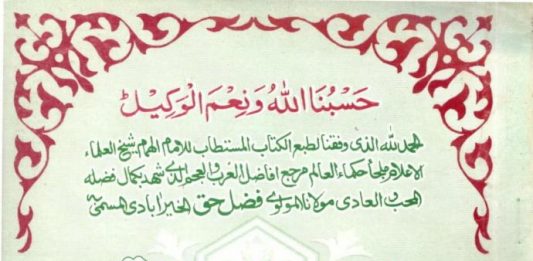 حَسْبُنَا اللهُ وَنِعْمَ الْوَكِيلُ
الحمد لله الذى وفقنا لطبع الكتاب المستطاب للامام الهمام شيخ العلماء
الاعلام ملجأ حكماء العالم مرجع افاضل العرب والعجم الذى شهد بكمال فضله
المحب والعادى مولانا المولوے فضل حق الخيرابادى المسمى بہ